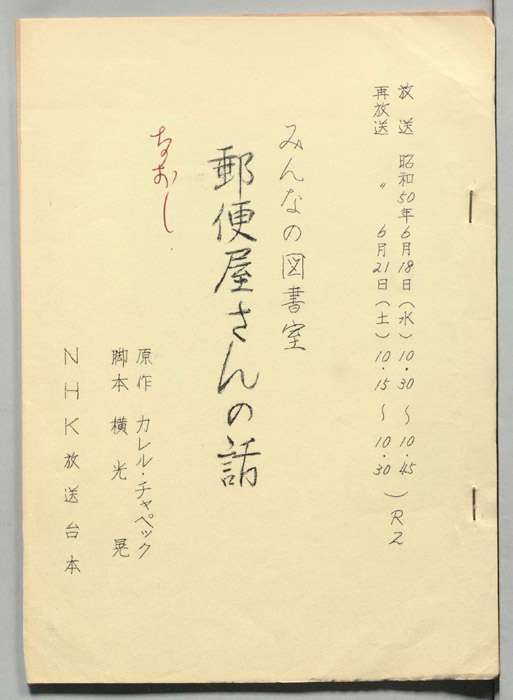 放送 昭和50年6月18日(水)10・30～10・45
再放送 〃 6月21日(土)10・15～10・30)R2
みんなの図書室
郵便屋さんの話
なおし
原作 カレル・チャペック
脚本 横光 晃
NHK放送台本